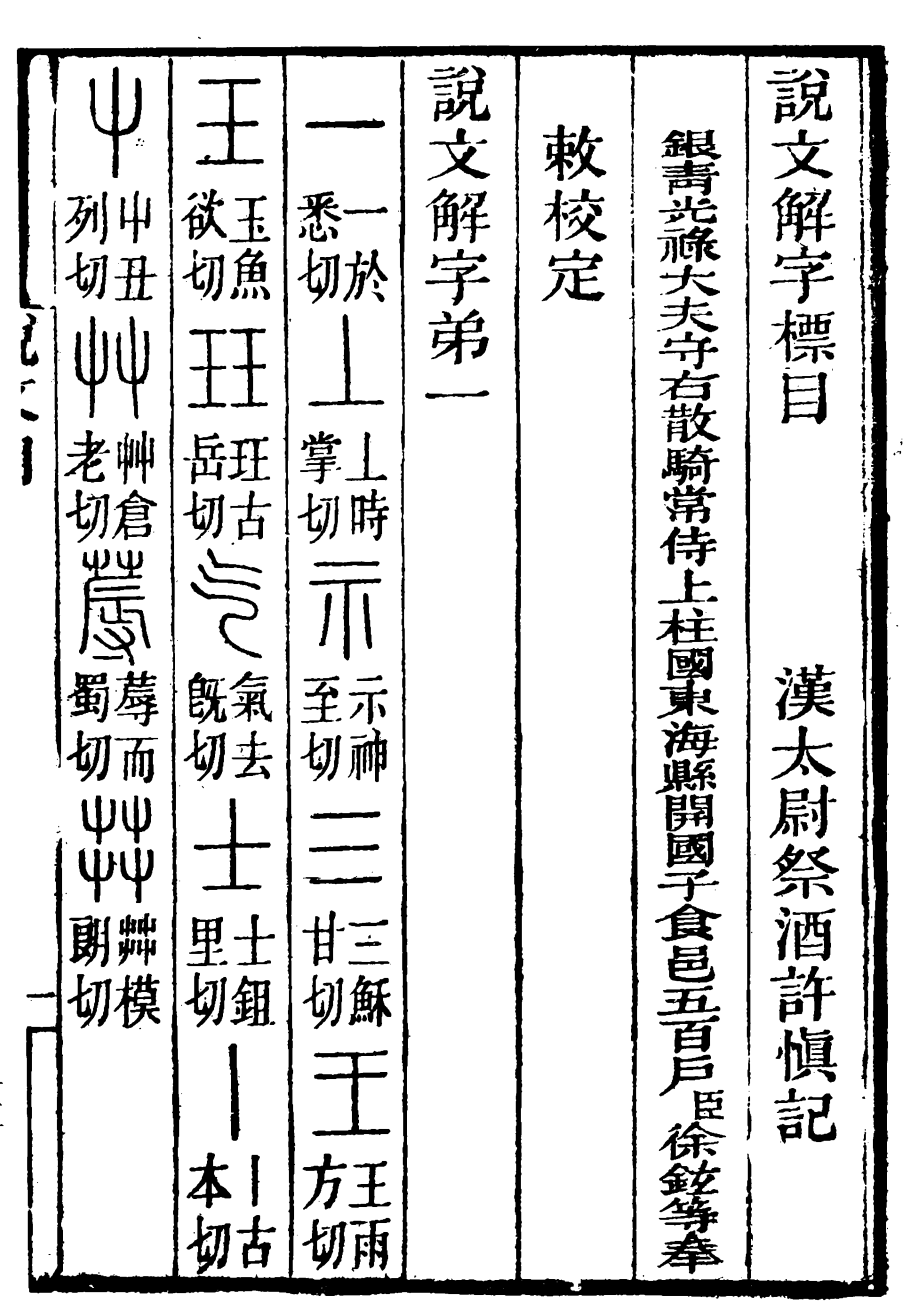 說文解字標目 漢太尉祭酒許慎記
銀青光祿大夫守右散騎常侍上柱國東海縣開國子食邑五百戶臣徐鉉等奉
敕校定
說文解字弟一
一 一於悉切 丄 丄時掌切 示 示神至切 三 三穌甘切 王 王雨方切
玉 玉魚欲切 玨 玨古岳切 气 氣去旣切 士 士鉏里切 丨 丨古本切
屮 屮丑列切 艸 艸倉老切 蓐 蓐而蜀切 茻 茻模朗切
一